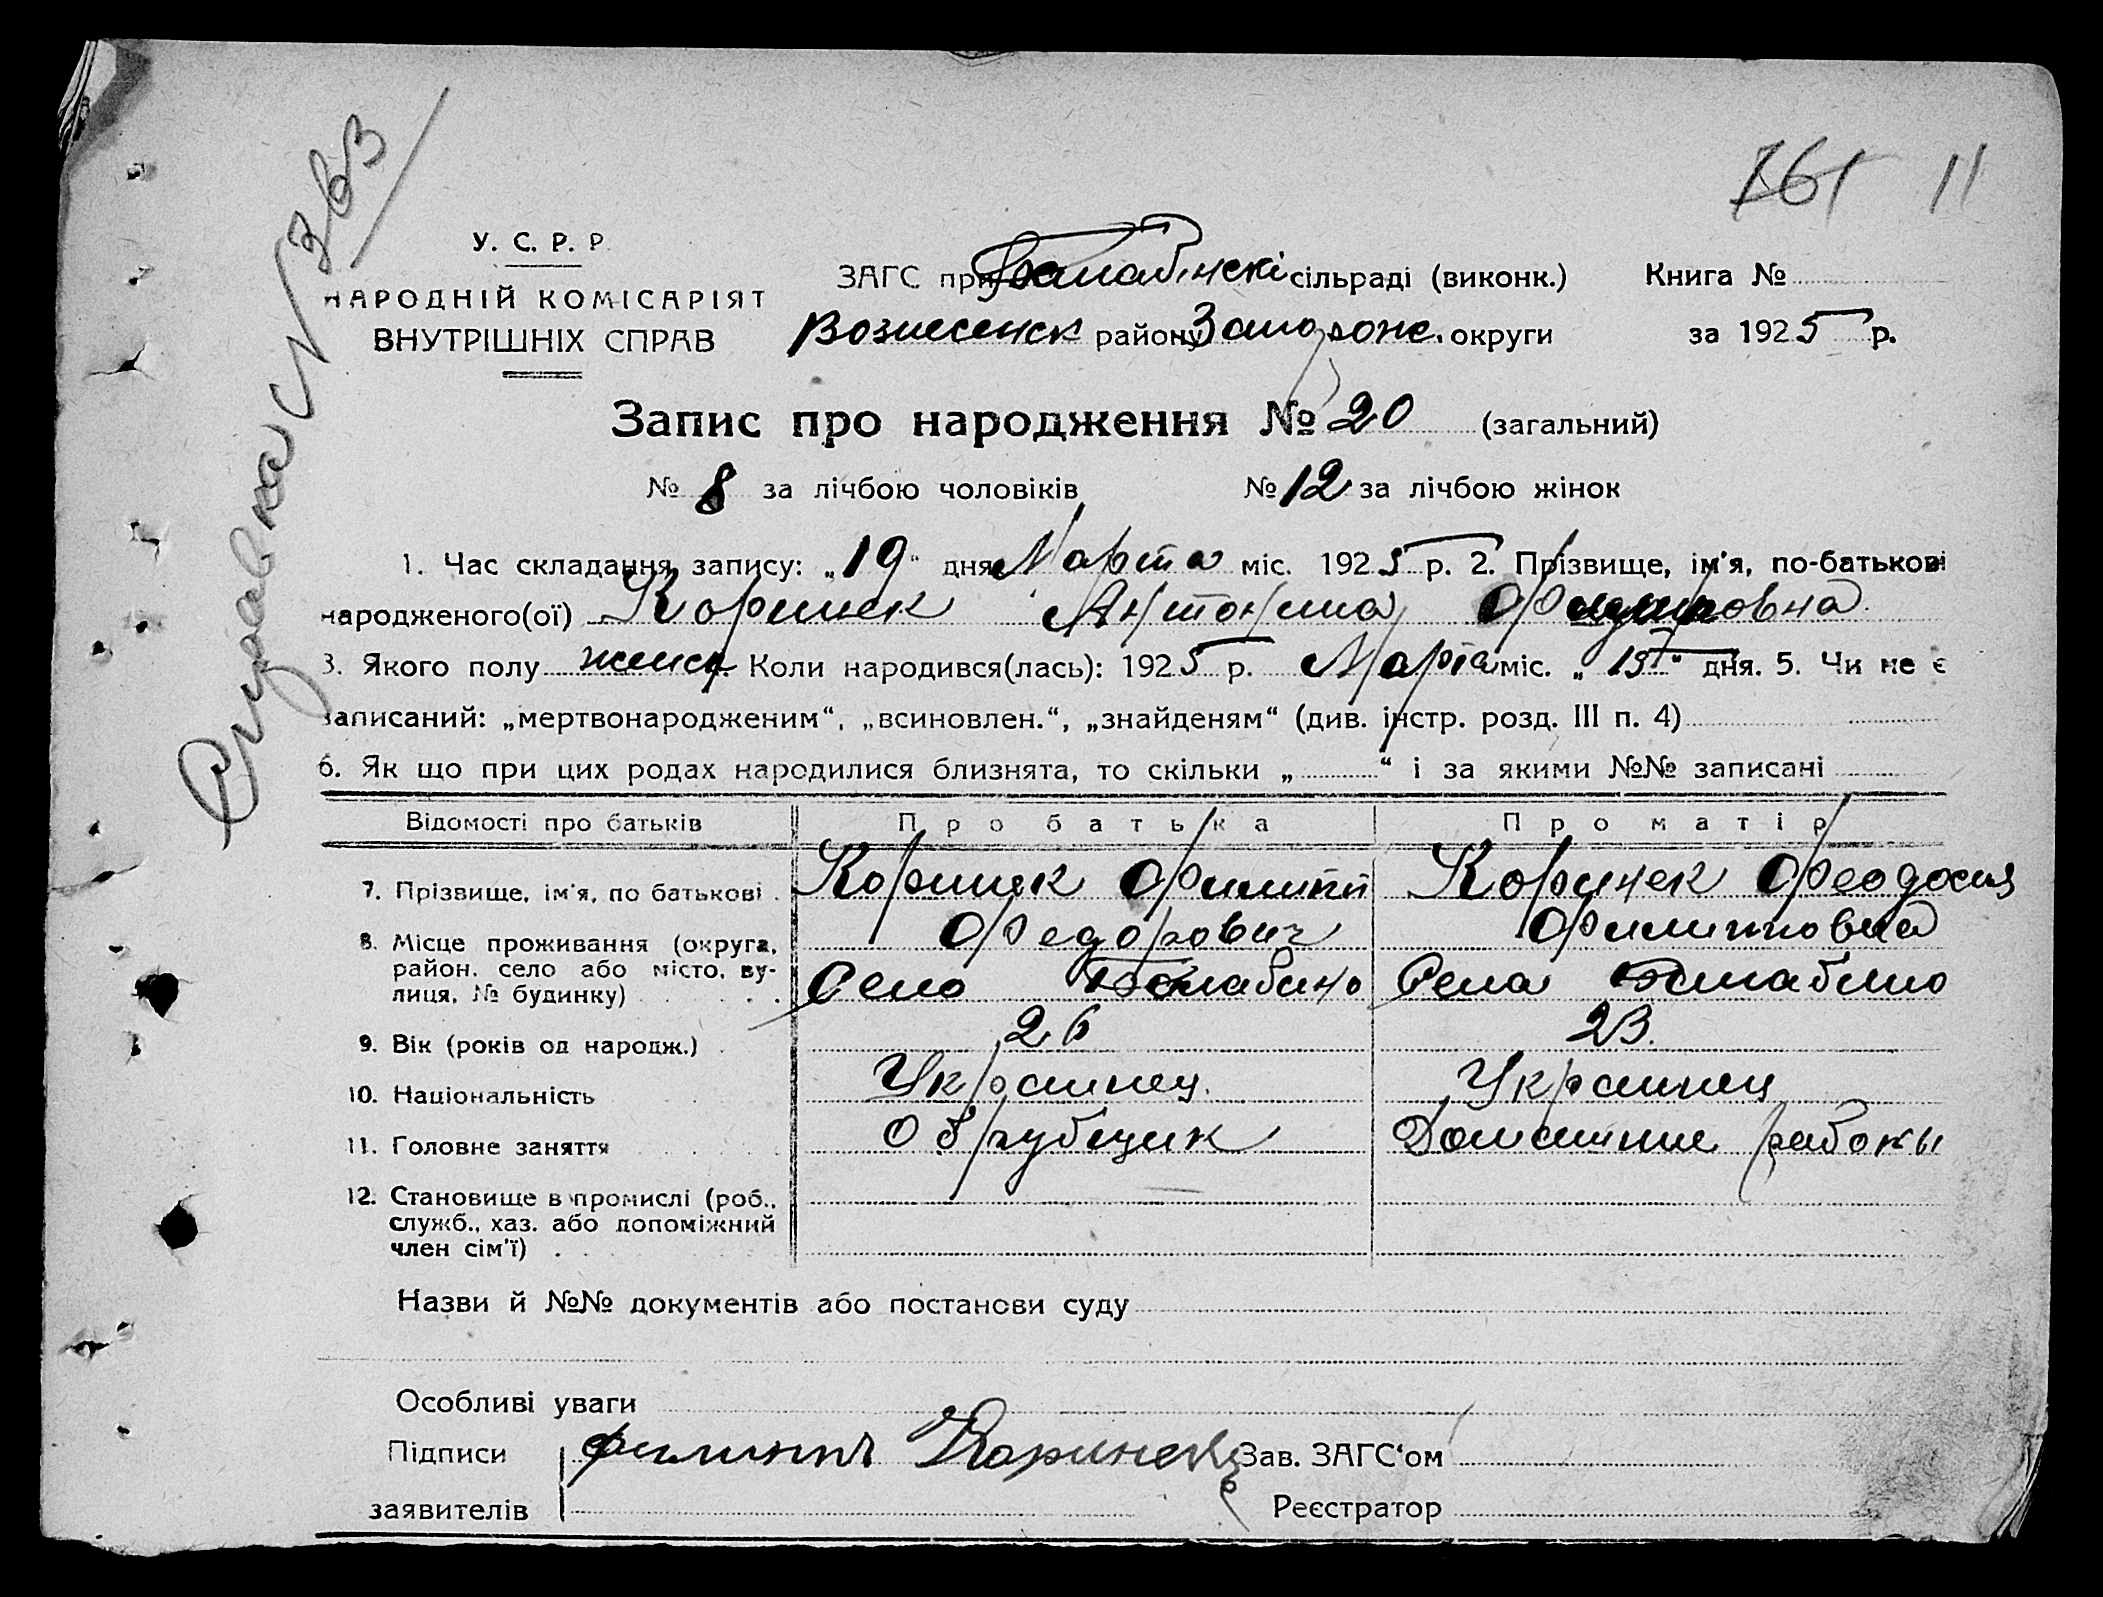 Справка N 363
761 11
У. С. Р. Р.
НАРОДНІЙ КОМІСАРІЯТ
ВНУТРІШНІХ СПРАВ
ЗАГС при Балабінскі сільраді (виконк.) Книга №
Вознесенск району Запорож. округи за 1925 р.
Запис про народження № 20 (загальний)
№ 8 за лічбою чоловіків № 12 за лічбою жінок
1. Час складання запису: „19“ дня Марта міс. 1925 р. 2. Прізвище, ім'я, по-батькові
народженого(ої) Коринек Антонина
3. Якого полу женск. Коли народився(лась): 1925 р. Марта міс. „15“ дня. 5. Чи не є
записаний: „мертвонародженим“, „всиновлен.“, „знайденям“ (див. інстр. розд. III п. 4)
6. Як що при цих родах народилися близнята, то скільки „ “ і за якими №№ записані
Відомості про батьків Про батька Про матір
7. Прізвище, ім'я, по батькові . Коринек Филипп Коринек Феодосия
Федорович Филипповна
8. Місце проживання (округа, район, село або місто, вулиця, № будинку) Село Балабино Села Балабино
9. Вік (років од народж.) 26 23.
10. Національність Украинец. Украинец
11. Головне заняття Обрубщик Домашние работы
12. Становище в промислі (роб., служб., хаз. або допоміжний член сім'ї) .
Назви й №№ документів або постанови суду
Особливі уваги
Підписи Филиппъ Коринекъ Зав. ЗАГС'ом
заявителів Реєстратор